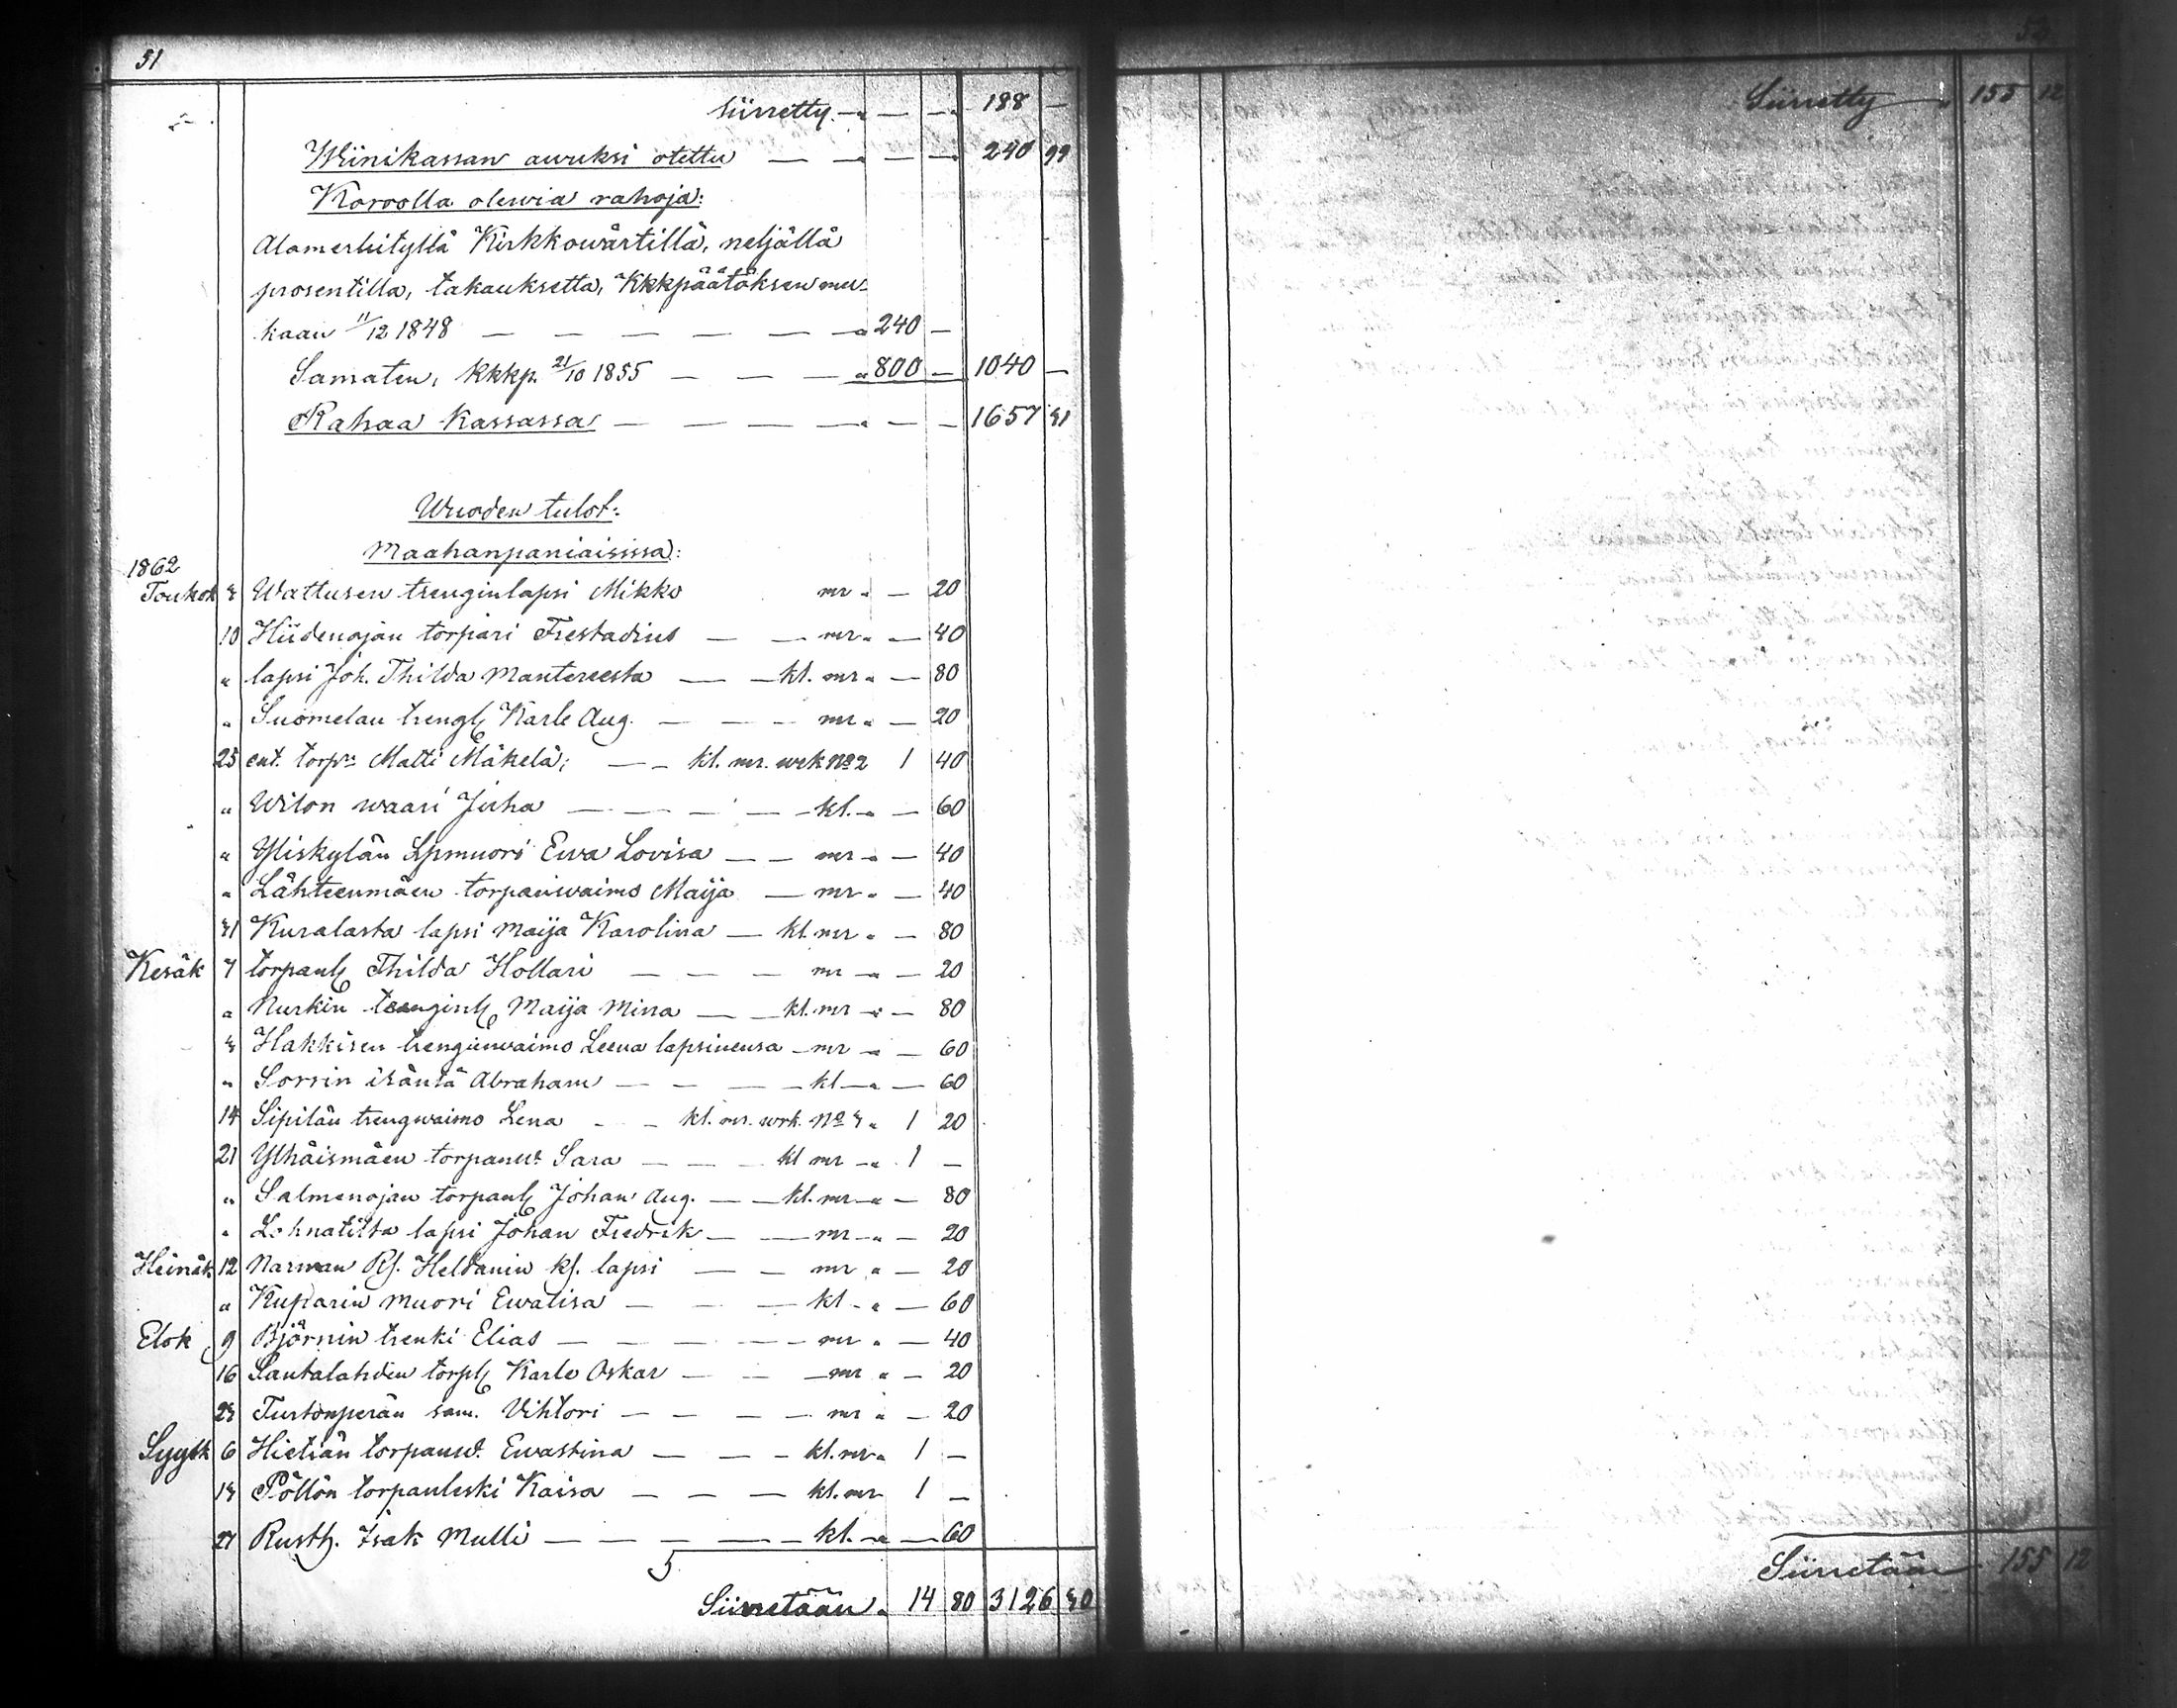 51
Siirretty — 188 —
Wiinikassan awuksi otettu — 240 99
Korolla olewia rahoja:
Alamerkityllä Kirkkowärtillä, neljällä
prosentilla, takauksetta, Kkkpäätöksen mu-
kaan 11/12 1848 — 240 —
Samaten, kkkp. 21/10 1855 — 800 — 1040 —
Rahaa kassassa — 1657 31
Wuoden tulot:
Maahanpaniaisissa:
1862
Toukok 3 Wattusen trenginlapsi Mikko mr " — 20
10 Hiidenojan torpari Frestadius — mr " — 40
" lapsi Joh. Thilda Mantereesta — kl. mr " — 80
" Suomelan trengl. Karle Aug. — mr " — 20
25 ent. torp. Matti Mäkelä; — kl. mr. wrk No 2 1 40
" Wilon waari Juha — kl. " — 60
" Yliskylän Spmuori Ewa Lovisa — mr " — 40
" Lähteenmäen torpanwaimo Maija — mr " — 40
31 Kuralasta lapsi Maija Karolina — kl. mr " — 80
Kesäk 7 torpanl. Thilda Hollari — mr " — 20
" Nurkin trenginl. Maija Mina — kl. mr " — 80
" Hakkisen trenginwaimo Leena lapsinensa — mr " — 60
" Sorrin isäntä Abraham — kl — " — 60
14 Sipilän trengwaimo Lena — kl. mr. wrk. No 3 " 1 20
21 Ylhäismäen torpanw. Sara — kl mr — " 1 —
" Salmenojan torpanl. Johan Aug. — kl. mr — " — 80
" Lehnatilta lapsi Johan Fredrik — mr — " — 20
Heinäk 12 Narwan Rs. Heldanin ks. lapsi — mr " — 20
" Kuparin muori Ewalisa — kl — " — 60
Elok 9 Björnin trenki Elias — mr " — 40
16 Santalahden torpl. Karle Oskar — mr " — 20
23 Turtonperän sam. Vihtori — mr " — 20
Syysk 6 Hietiän torpanw. Ewastina — kl. mr " 1 —
13 Pöllön torpanleski Kaisa — kl. mr 1 —
27 Rusth. Isak Mulli — kl. — " — 60
Siirretään " 14 80 3126 30
52
Siirretty " 155 12
Siirretään 155 12